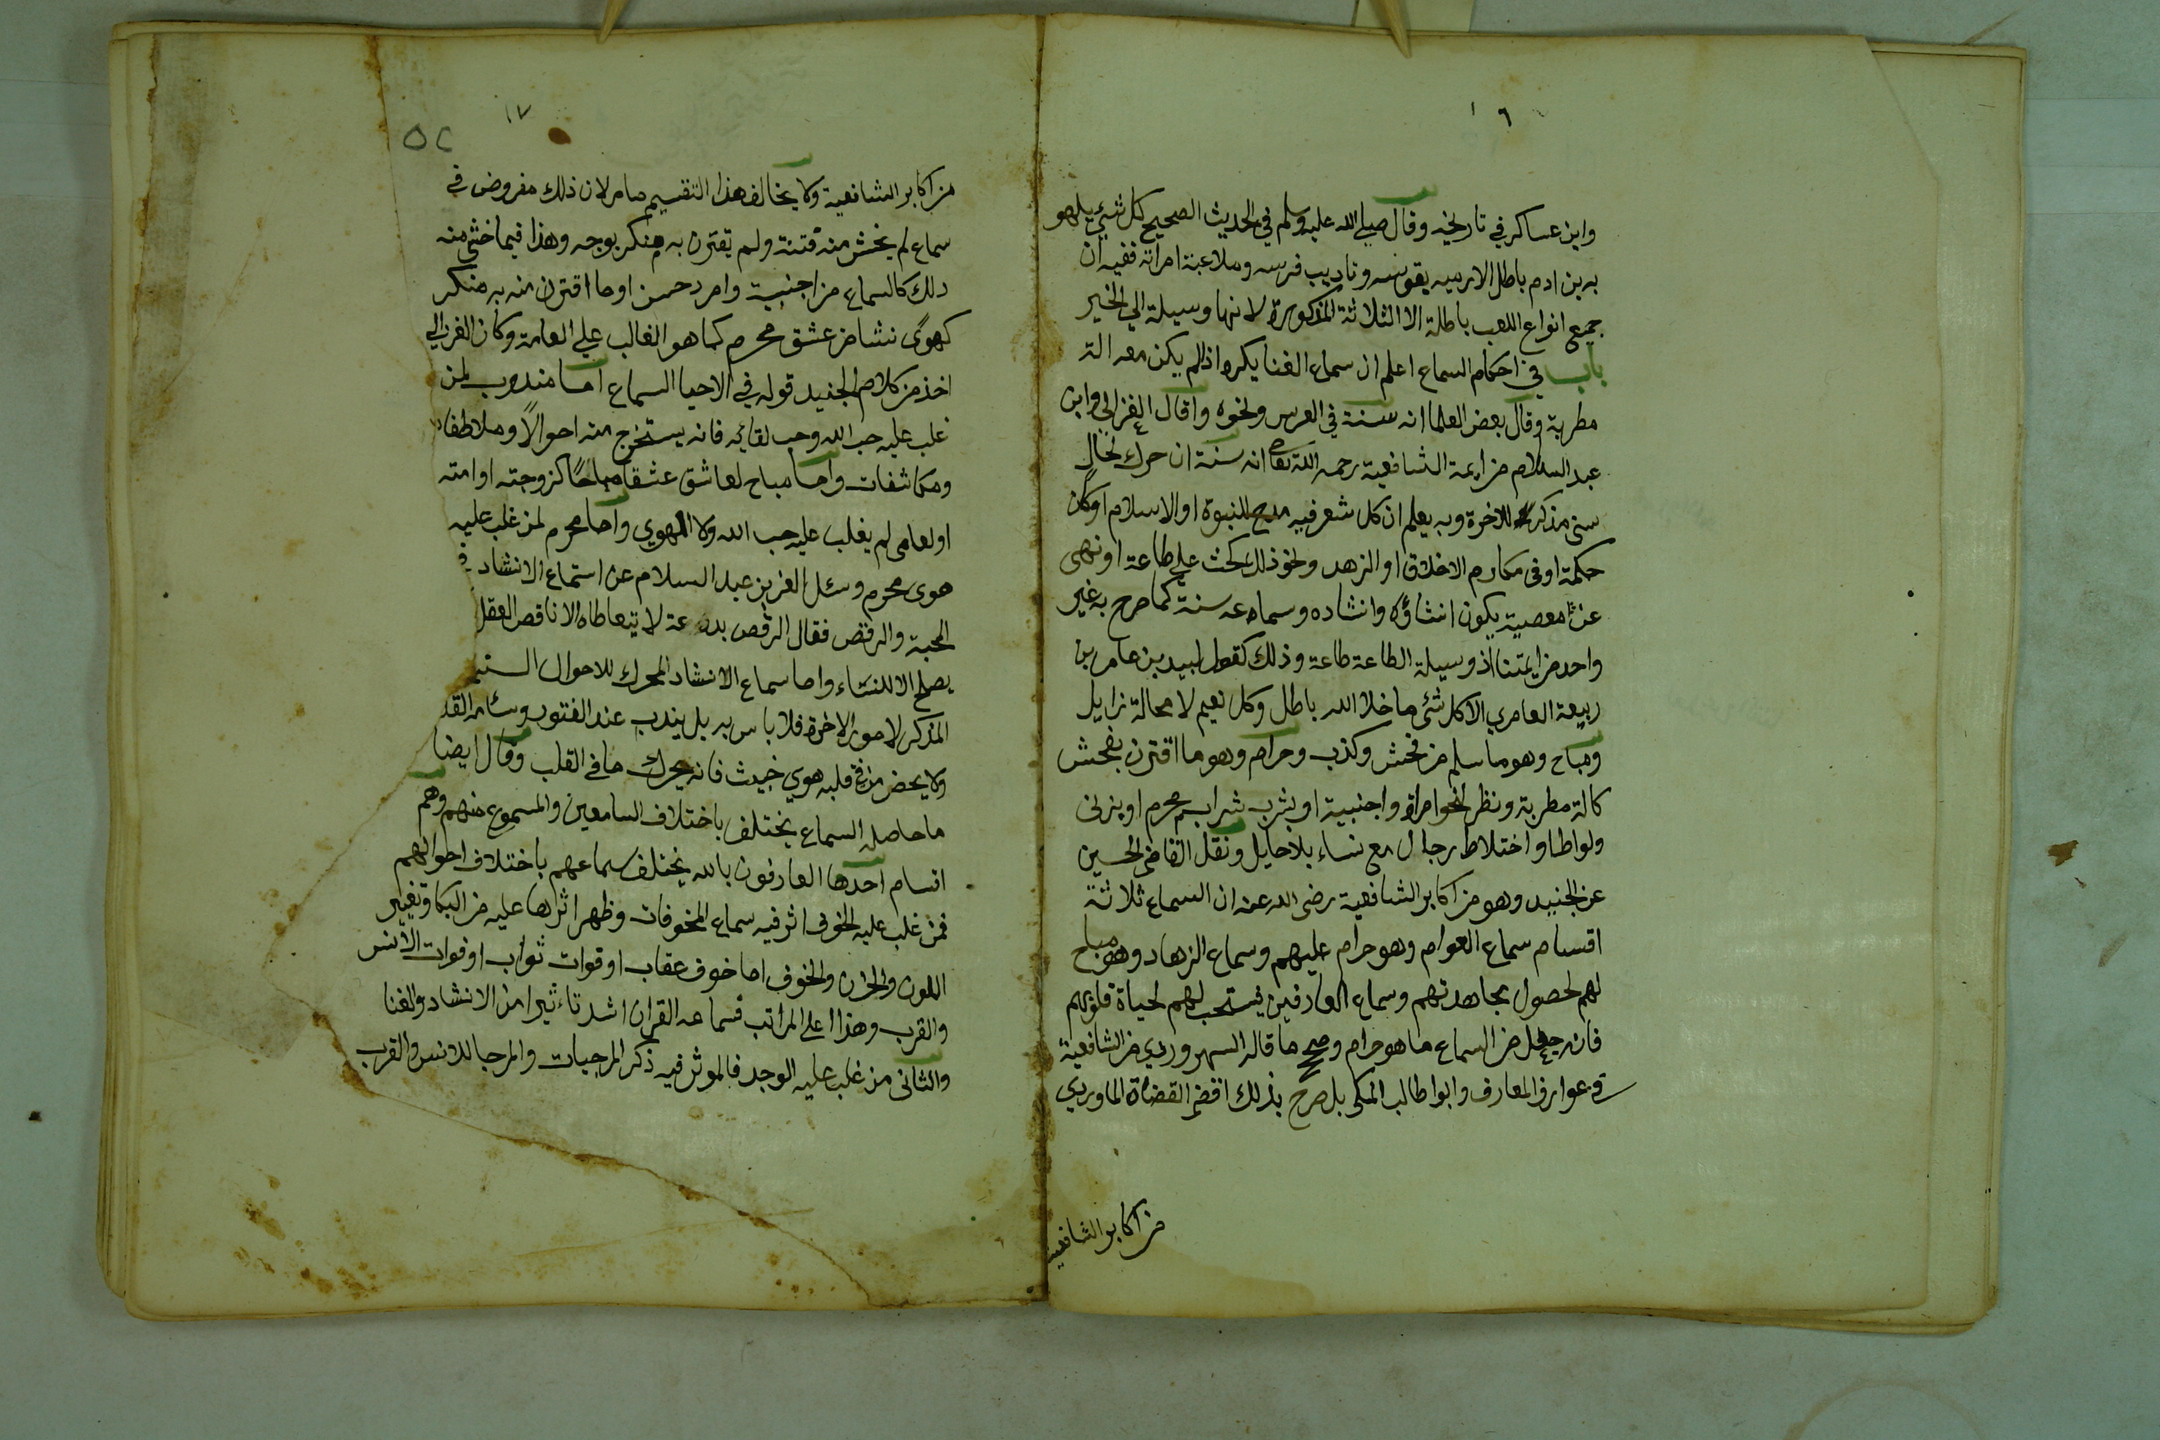 ١٦
وابن عساكر في تاريخه وقال صلى الله عليه وسلم في الحديث الصحيح كل شيء يلهو
به بن ادم باطل الا رميه بقوسه وتاديب فرسه وملاعبة امراته ففيه ان
جميع انواع اللعب باطلة الا الثلاثة المذكورة لانها وسيلة الي الخير
باب في احكام السماع اعلم ان سماع الغنا يكره اذا لم يكن معه الة
مطربة وقال بعض العلما انه سنة في العرس ونحوه وقال الغزالي وابن
عبد السلام من ايمة الشافعية رحمه الله تعالى انه سنة ان حرك لحال
سني مذكر للاخرة وبه يعلم ان كل شعر فيه مدح للنبوة او الاسلام اوكان
حكمة او في مكارم الاخلاق او الزهد ونحو ذلك كحث علي طاعة او نهي
عن معصية يكون انشاؤه وانشاده وسماعه سنة كما صرح به غير
واحد من ايمتنا اذ وسيلة الطاعة طاعة وذلك كقول لبيد بن عامر بن
ربيعة العامري الا كل شئ ما خلا الله باطل وكل نعيم لا محالة زايل
ومباح وهو ما سلم من فحش وكذب وحرام وهو ما اقترن بفحش
كالة مطربة ونظر لنحو امراة واجنبية او بشرب شراب محرم او بزنى
ولواطا واختلاط رجال مع نساء بلا حايل ونقل القاضي الحسين
عن الجنيد وهو من اكابر الشافعية رضى الله عنه ان السماع ثلاثة
اقسام سماع العوام وهو حرام عليهم وسماع الزهاد وهو مباح
لهم لحصول مجاهدتهم وسماع العارفين فيستحب لهم لحياة قلوبهم
فانه جعل من السماع ما هو حرام وصحح ما قاله السهروردي من الشافعية
في عوارف المعارف وابوا طالب المكي بل صرح بذلك اقضى القضاة الماوردي
من اكابر الشافعية
١٧
٥٢
من اكابر الشافعية ولا يخالف هذا التقسيم ما مر لان ذلك مفروض في
سماع لم يخش منه فتنة ولم يقترن به منكر بوجه وهذا فيما خشي منه
ذلك كالسماع من اجنبية وامرد حسن او ما اقترن منه به منكر
كهوى نشا من عشق محرم كما هو الغالب علي العامة وكان الغزالي
اخذ من كلام الجنيد قوله في الاحيا السماع اما مندوب لمن
غلب عليه حب الله وحب لقائه فانه يستخرج منه احوالًا وملاطفات
ومكاشفات واما مباح لعاشق عشقا مباحًا كزوجته او امته
او لعامى لم يغلب عليه حب الله ولا الهوي واما محرم لمن غلب عليه
هوى محرم وسئل العز بن عبد السلام عن استماع الانشاد في
المحبة والرقص فقال الرقص بدعة لا يتعاطاه الا ناقص العقل
يصلح الا للنساء واما سماع الانشاد المحرك للاحوال السنية
المذكر لامور الاخرة فلا باس به بل يندب عند الفتور وسامة القلـ
ولا يحضر من في قلبه هوي خبيث فانه يحرك ما في القلب وقال ايضا
ما حاصله السماع يختلف باختلاف السامعين والمسموع منهم وهم
اقسام احدها العارفون بالله يختلف سماعهم باختلاف احوالهم
فمن غلب عليه الخوف اثر فيه سماع المخوفات وظهر اثرها عليه من البكا وتغير
اللون والحزن والخوف اما خوف عقاب او فوات ثواب او فوات الأنس
والقرب وهذا اعلي المراتب فسماعه القران اشد تاءثيرا من الانشاد والغنا
والثانى من غلب عليه الوجد فالموثر فيه ذكر المرجيات والمرجا للانس والقرب